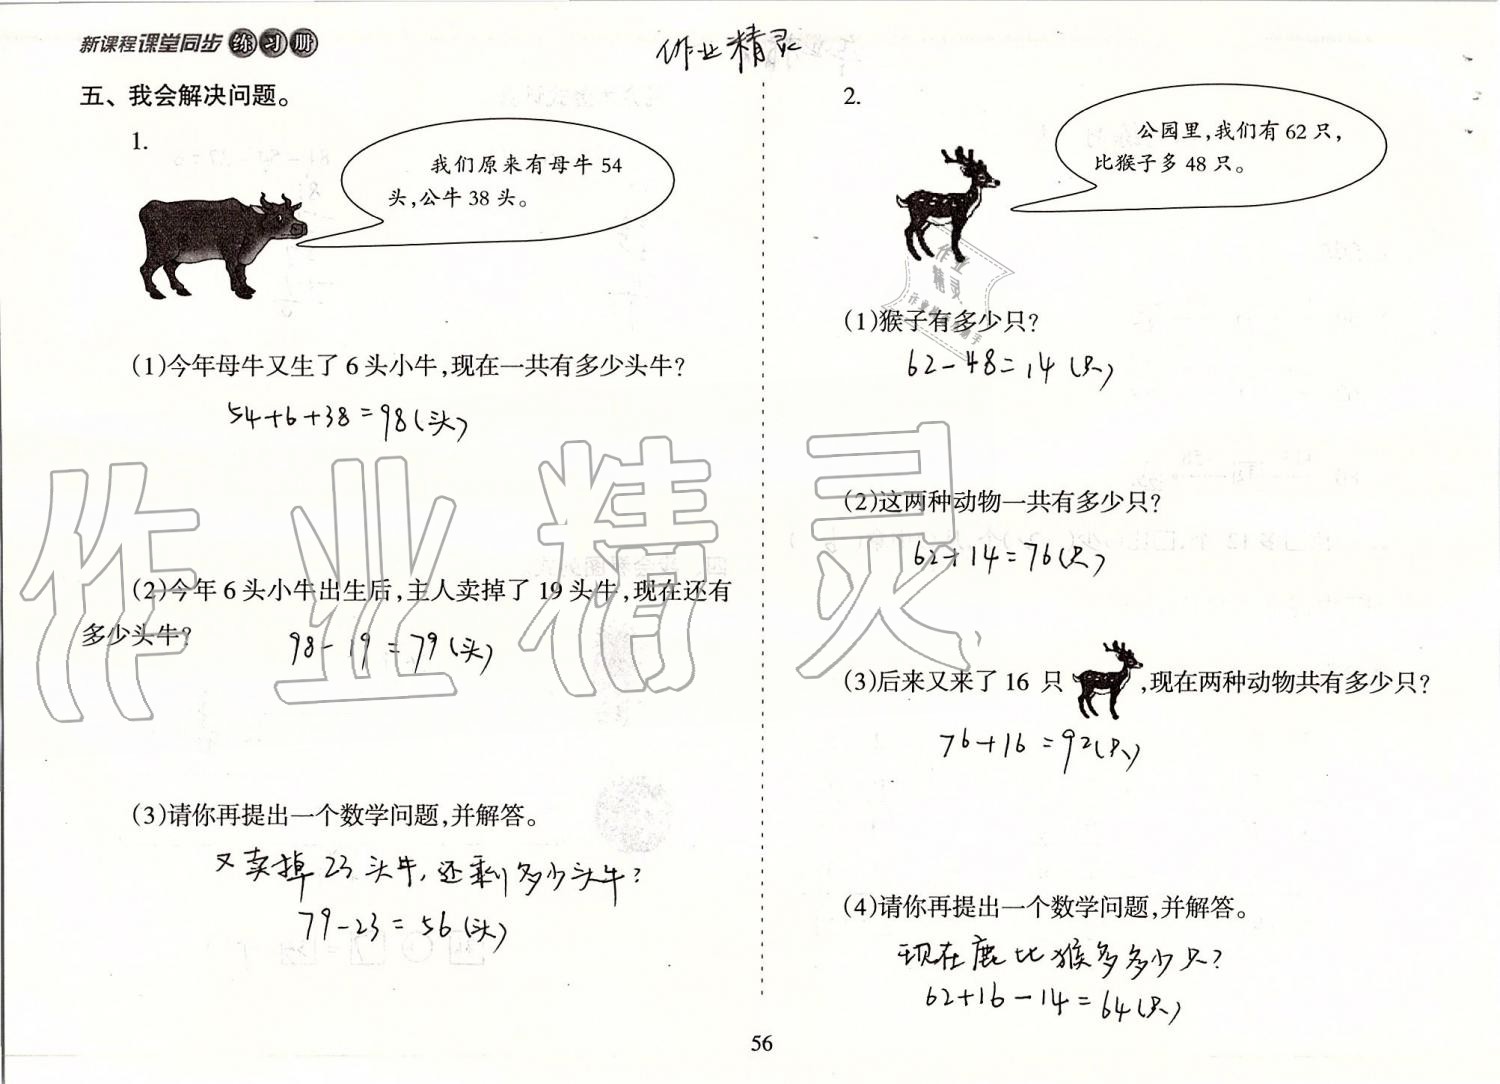 新课程课堂同步练习册
作业精灵
五、我会解决问题。
1.
我们原来有母牛 54
头,公牛 38 头。
(1)今年母牛又生了 6 头小牛,现在一共有多少头牛?
54+6+38=98(头)
(2)今年 6 头小牛出生后,主人卖掉了 19 头牛,现在还有
多少头牛?
98-19=79(头)
(3)请你再提出一个数学问题,并解答。
又卖掉23头牛,还剩多少头牛?
79-23=56(头)
2.
公园里,我们有 62 只,
比猴子多 48 只。
作业
精灵
(1)猴子有多少只?
62-48=14(只)
(2)这两种动物一共有多少只?
62+14=76(只)
(3)后来又来了 16 只 ,现在两种动物共有多少只?
76+16=92(只)
(4)请你再提出一个数学问题,并解答。
现在鹿比猴多多少只?
62+16-14=64(只)
作业精灵
56